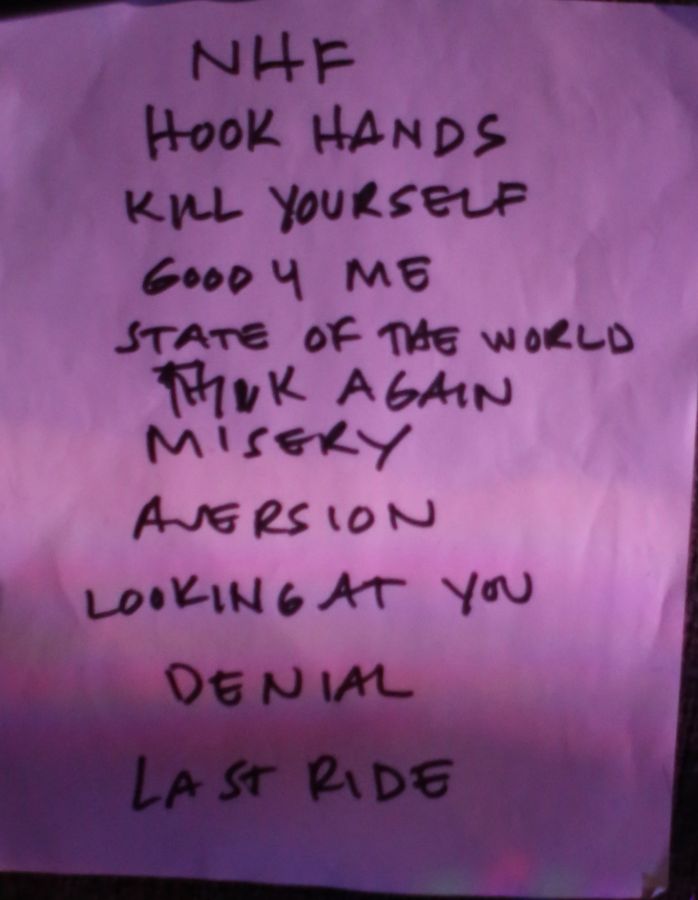 NHF
HOOK HANDS
KILL YOURSELF
GOOD 4 ME
STATE OF THE WORLD
THINK AGAIN
MISERY
AVERSION
LOOKING AT YOU
DENIAL
LAST RIDE